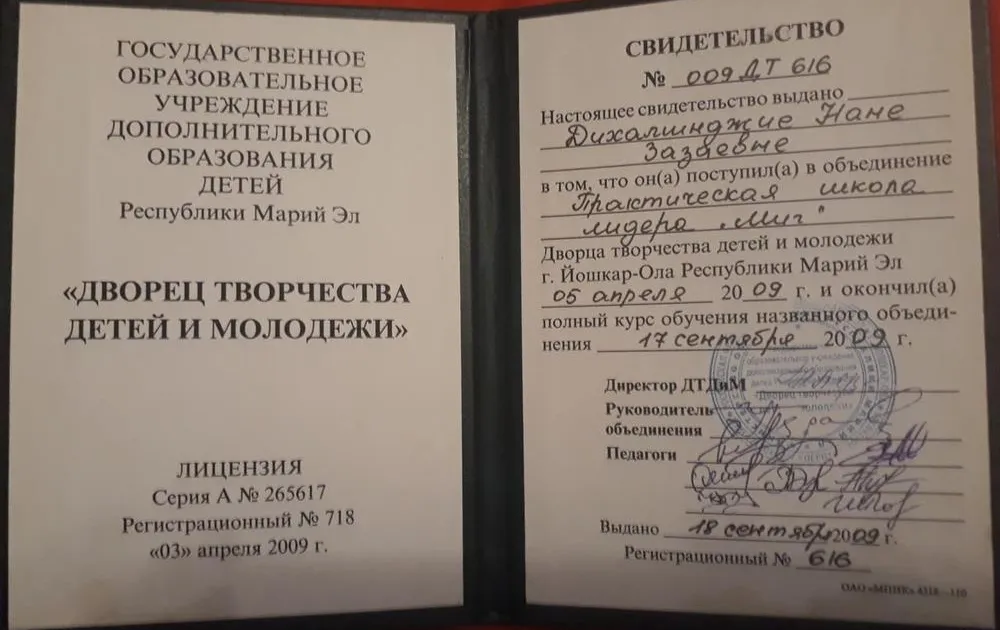 ГОСУДАРСТВЕННОЕ
ОБРАЗОВАТЕЛЬНОЕ
УЧРЕЖДЕНИЕ
ДОПОЛНИТЕЛЬНОГО
ОБРАЗОВАНИЯ
ДЕТЕЙ
Республики Марий Эл
«ДВОРЕЦ ТВОРЧЕСТВА
ДЕТЕЙ И МОЛОДЕЖИ»
ЛИЦЕНЗИЯ
Серия А № 265617
Регистрационный № 718
«03» апреля 2009 г.
СВИДЕТЕЛЬСТВО
№ 009 ДТ 616
Настоящее свидетельство выдано
Нане
Зазаевне
в том, что он(а) поступил(а) в объединение
Практическая школа
лидера „Миг"
Дворца творчества детей и молодежи
г. Йошкар-Ола Республики Марий Эл
05 апреля 2009 г. и окончил(а)
полный курс обучения названного объеди-
нения 17 сентября 2009 г.
Директор ДТДиМ
Руководитель
объединения
Педагоги
Выдано 18 сентября 2009 г.
Регистрационный № 616